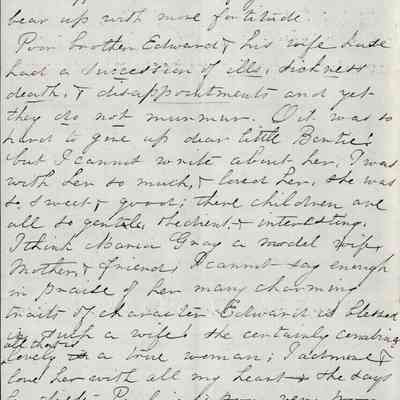 bear up with more fortitude.
Poor brother Edward & his wife have
had a succession of ills, sickness
death, & disappointments and yet
they do not murmur. O it was so
hard to give up dear little Bentie!
but I cannot write about her, I was
with her so much, & loved her, she was
so sweet & good; there children are
all so gentle, obedient, & interesting,
I think Maria Gray a model wife,
Mother, & friend, I cannot say enough
in praise of her many charming
traits of character Edward is blessed
in such a wife! she certainly combines
all that is
lovely in a true woman; I admire &
love her with all my heart & she says